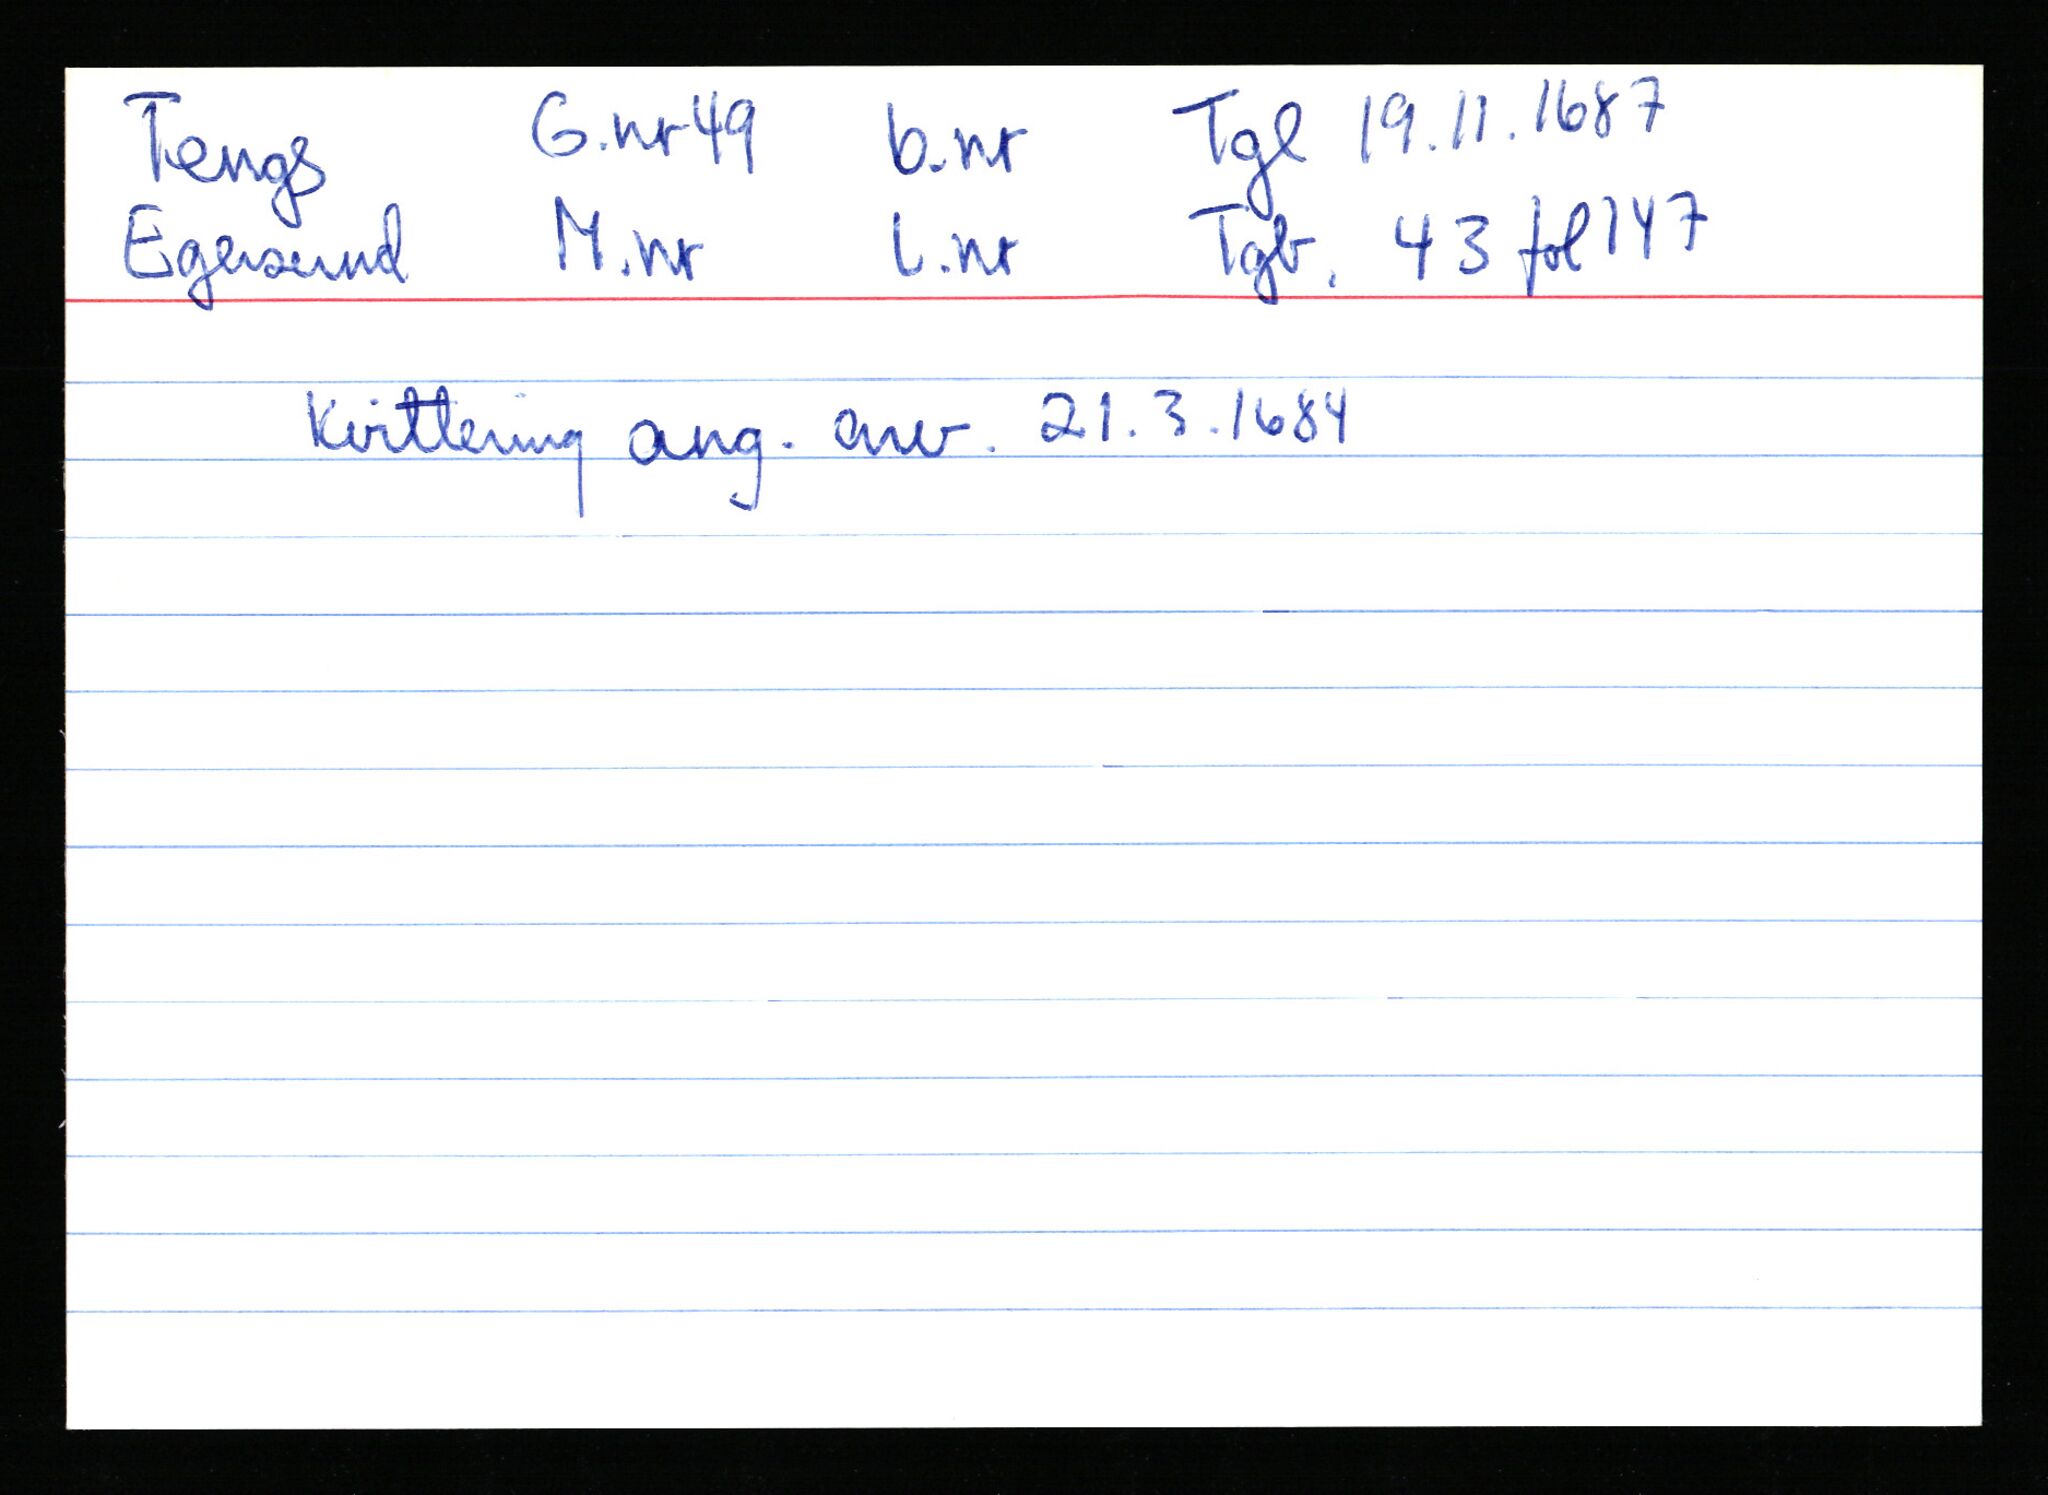 Tengs G.nr 49 b.nr Tgl 19.11.1687
Egersund M.nr L.nr Tgb. 43 fol 147
Kvittering ang. arv. 21.3.1684